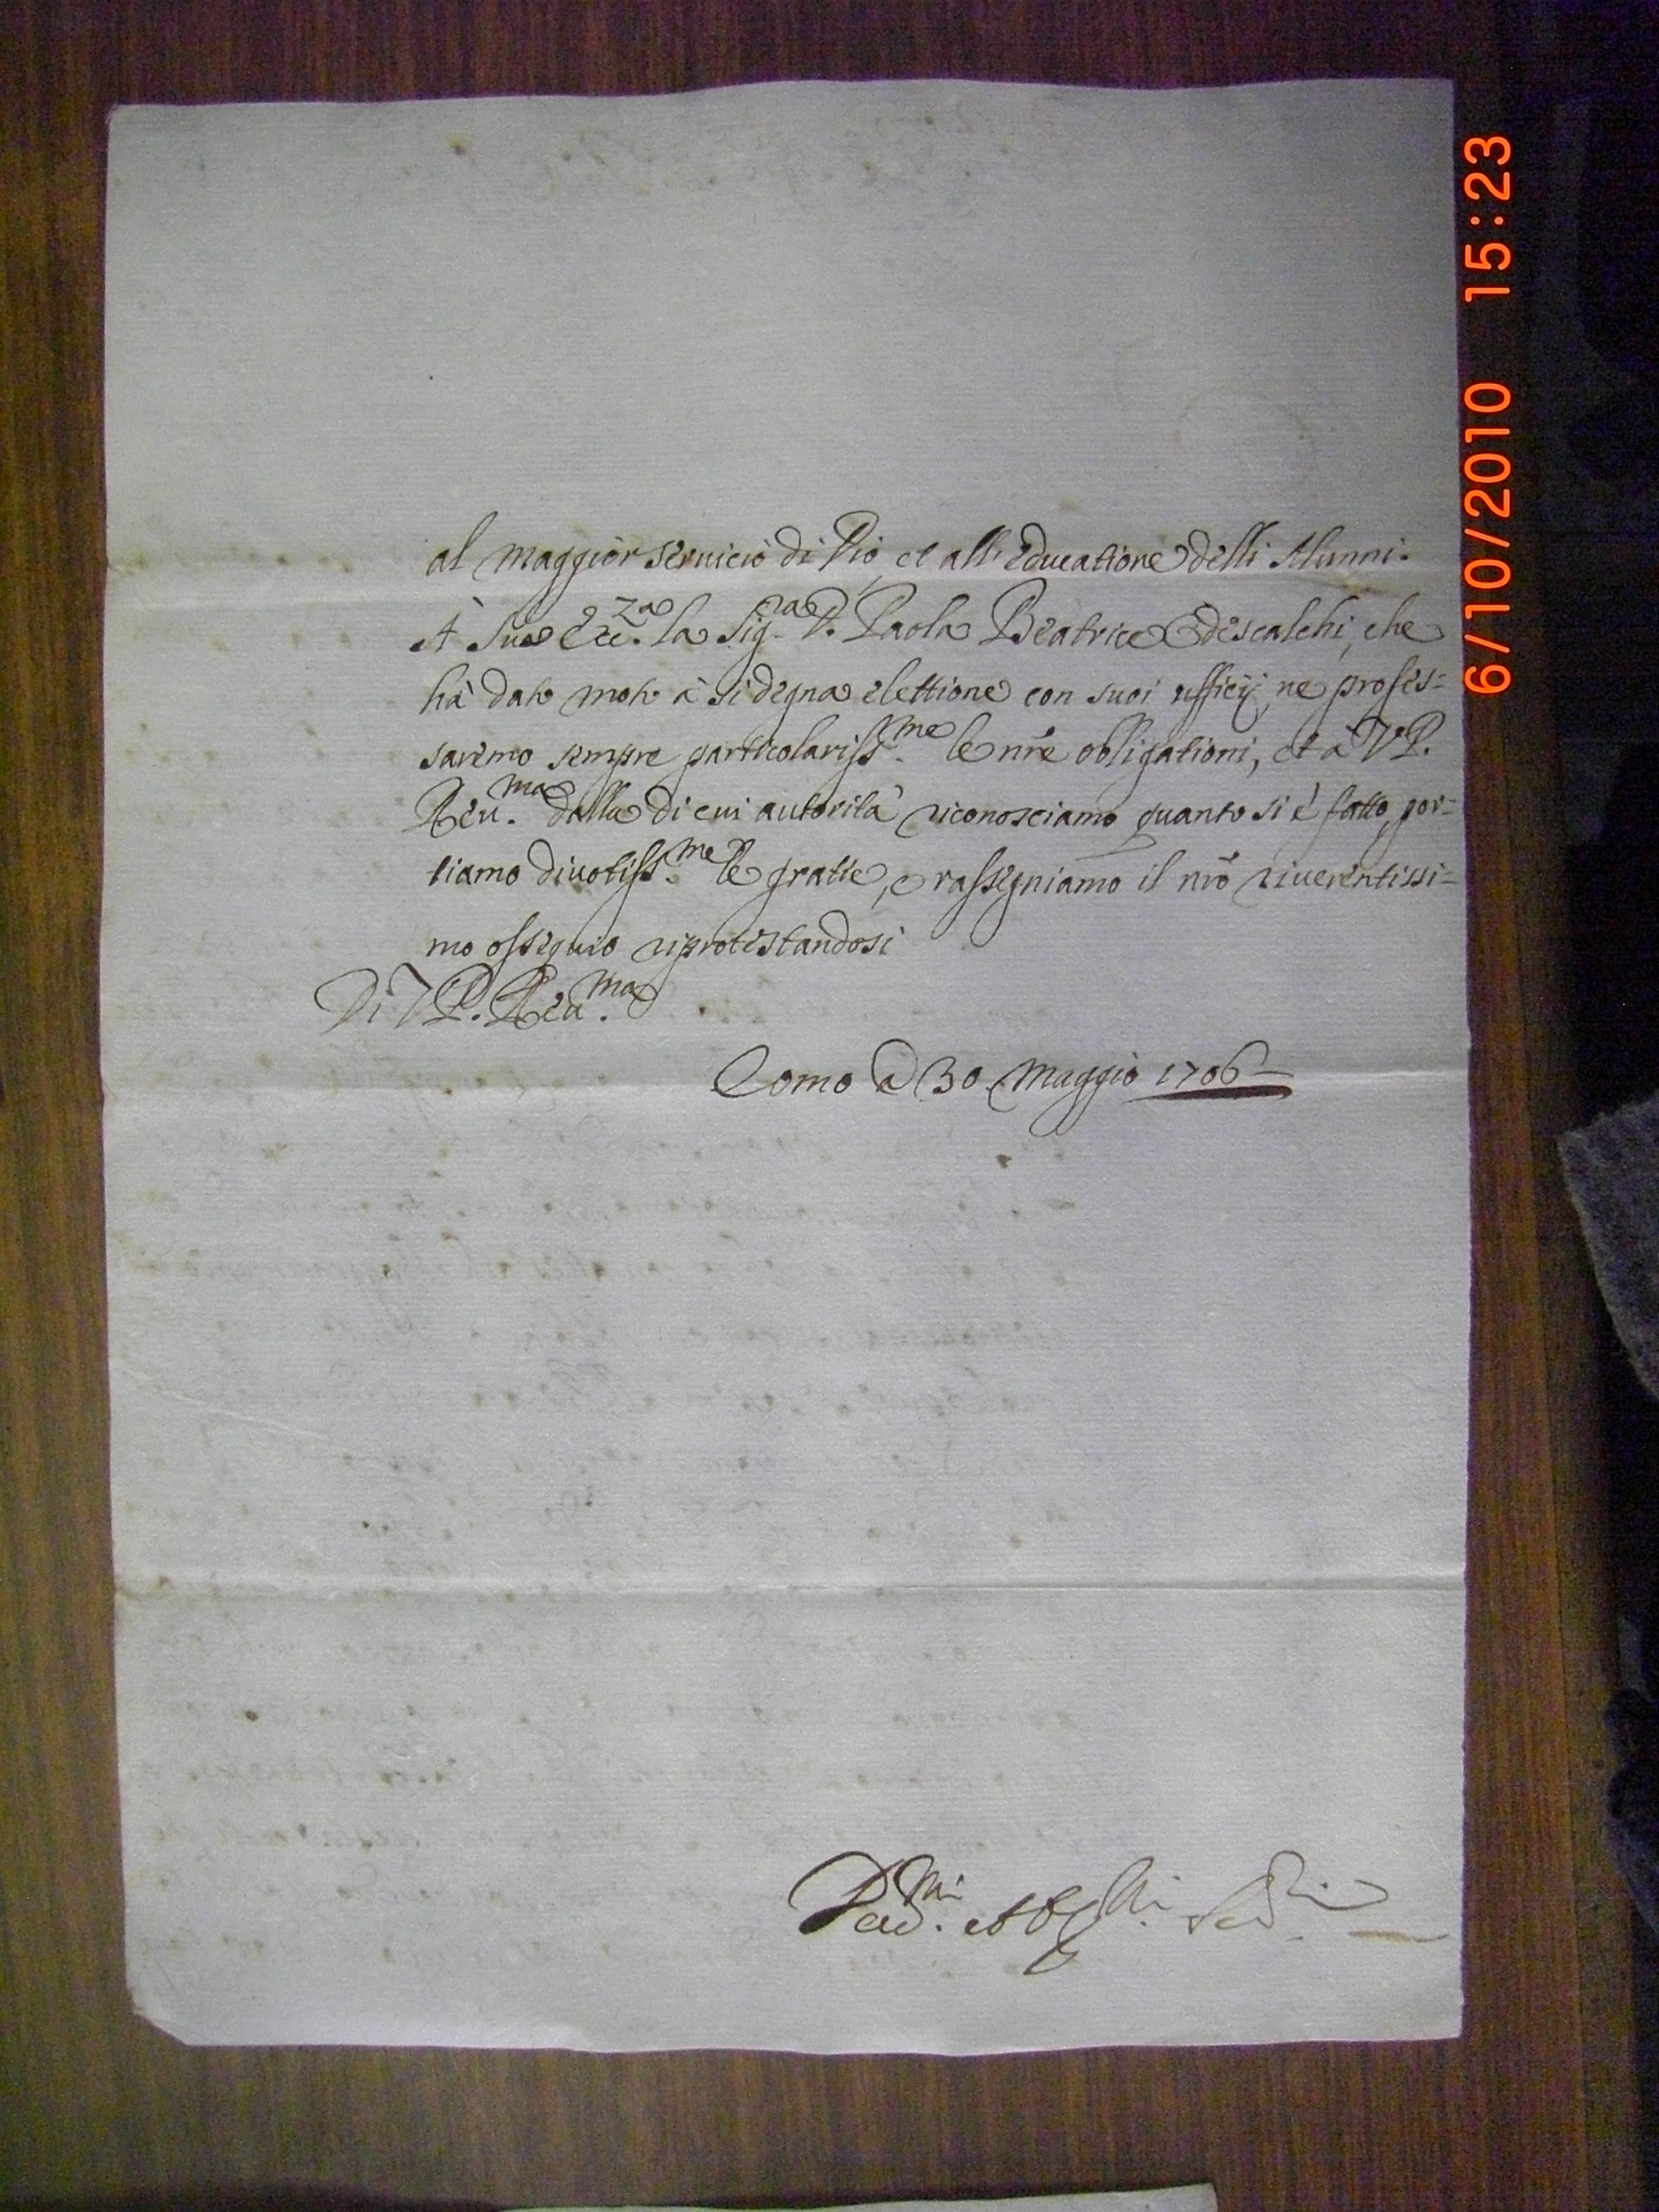 al maggior servicio di Dio, et all'educatione delli Alunni.
À Sua Ecc.za la Sig.ra D. Paola Beatrice Odescalchi, che
hà dato moto à si degna elettione con suoi ufficij, ne profes=
saremo sempre particolariss.me le nr̃e obligationi, et à V. P.
Reu.ma dalla di cui autorità riconosciamo quanto si è fatto, por=
tiamo diuotiss.me le gratie, e rassegniamo il nr̃o riuerentissi=
mo ossequio riprotestandosi
Di V. P. Reu.ma
Como a 30 Maggio 1706
6/10/2010 15:23